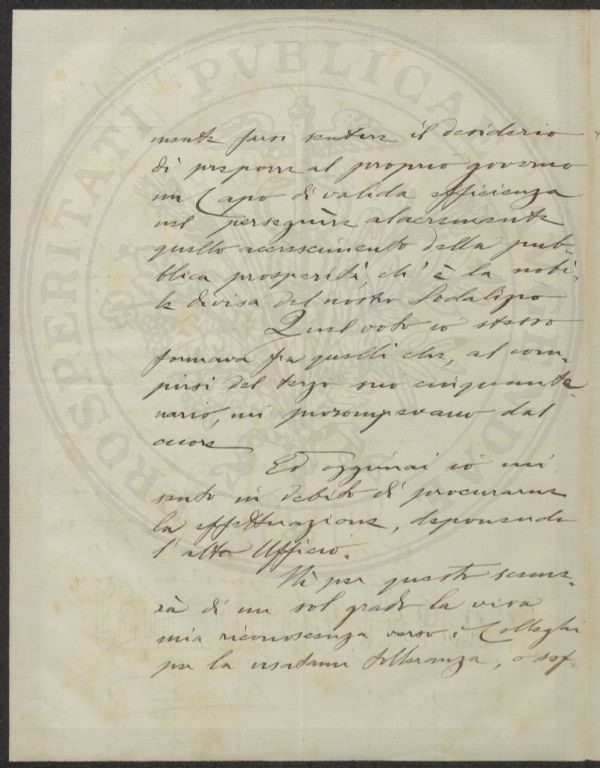 PROSPERITATI PVBLICAE
mente farsi sentire il desiderio
di preporre al proprio governo
un Capo di valida efficienza
nel perseguire alacremente
quello accrescimento della pub-
blica prosperità, ch'è la nobi-
le divisa del nostro Sodalizio
Quel voto io stesso
formava fra quelli che, al com-
piersi del terzo suo cinquante-
nario, mi prorompevano dal
cuore
Ed oggimai io mi
sento in debito di procurarne
la effettuazione, deponendo
l'alto Ufficio.
Nè per questo sceme-
rà di un sol grado la viva
mia riconoscenza verso i Colleghi
per la usatami tolleranza, o sof-